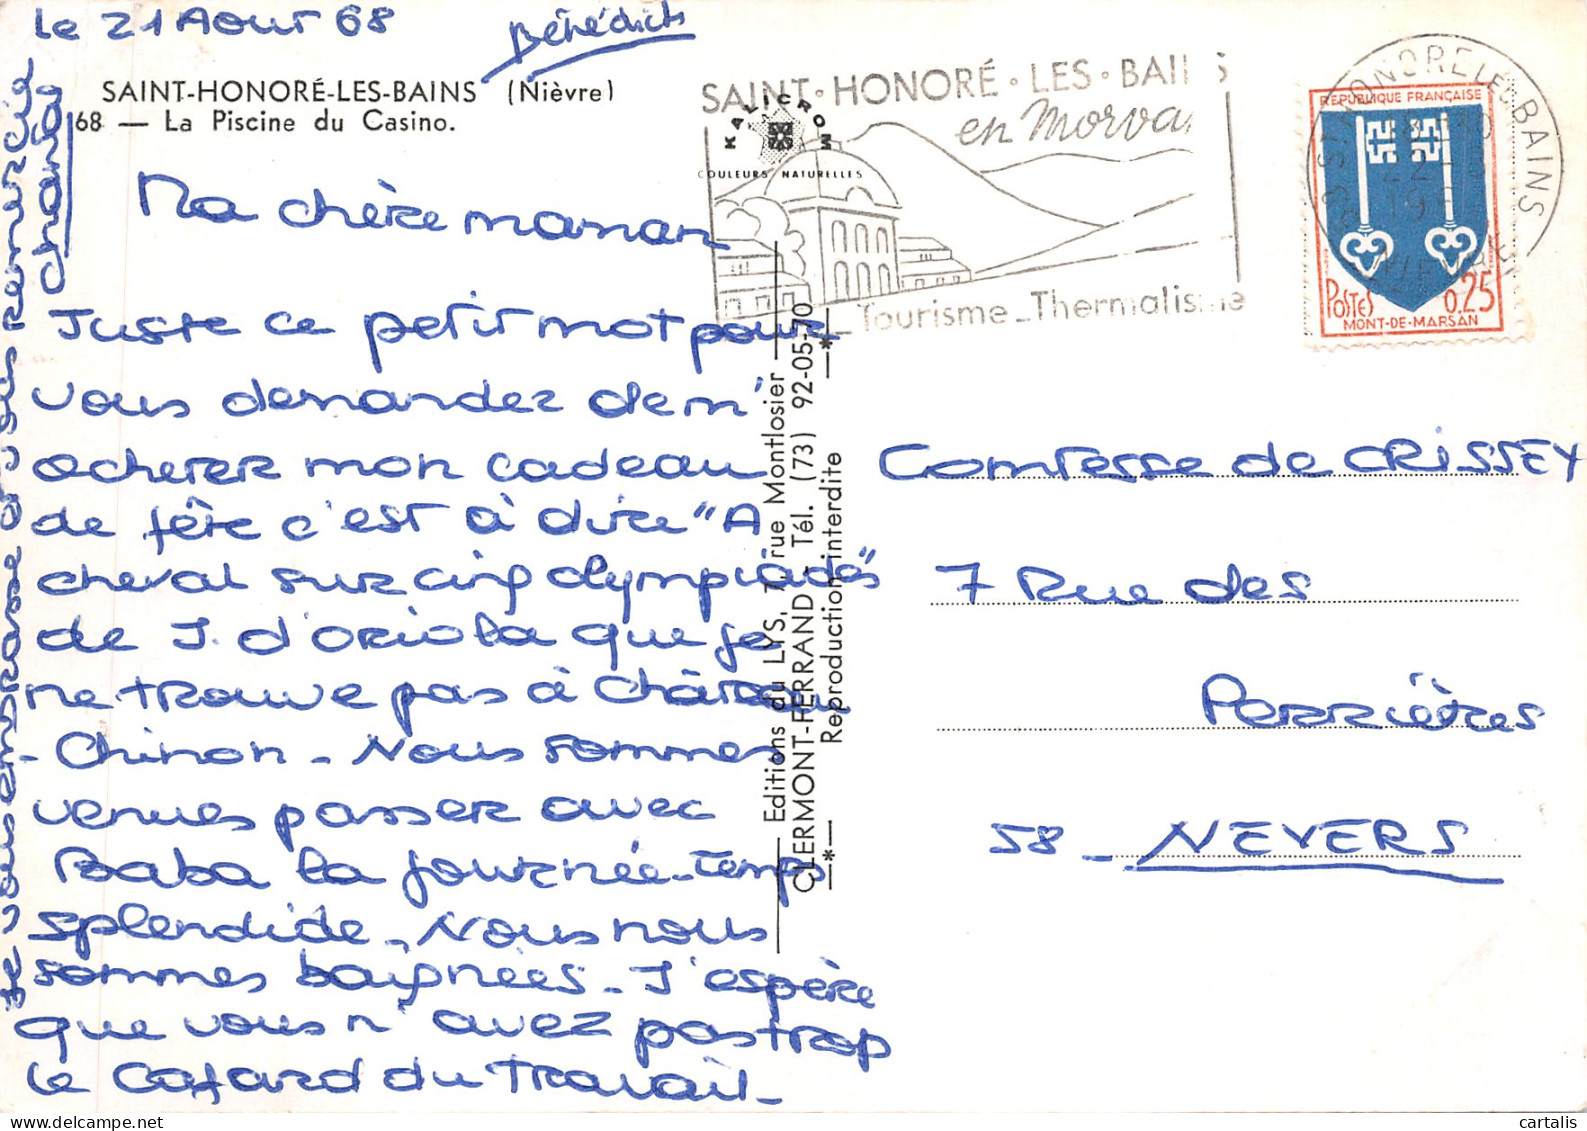 le 21 Août 68
Bénédicte
SAINT-HONORÉ-LES-BAINS (Nièvre)
68 — La Piscine du Casino.
Ma chère maman
Juste ce petit mot pour
vous demander de m'
acheter mon cadeau
de fête c'est à dire "A
cheval sur cinq olympiades"
de J. d'Oriola que je
ne trouve pas à Château
- Chinon - Nous sommes
venues passer avec
Baba la journée - temps
splendide - Nous nous
sommes baignées - J'espère
que vous n'avez pas trop
le cafard du travail -
Je vous embrasse et vous remercie
KALICROM
COULEURS NATURELLES
Editions du LYS, 7, rue Montlosier
CLERMONT-FERRAND - Tél. (73) 92-05-70
Reproduction interdite
SAINT·HONORÉ·LES·BAINS
en Morvan
Tourisme - Thermalisme
RÉPUBLIQUE FRANÇAISE
POSTES 0,25
MONT-DE-MARSAN
Comtesse de CRISSEY
7 Rue des
Perrières
58 - NEVERS
cartalis